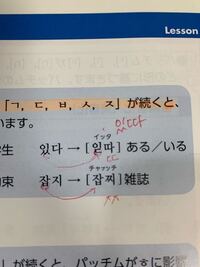 Lesson
「ㄱ, ㄷ, ㅂ, ㅅ, ㅈ」が続くと、
います。
읻따
イッタ
学生 있다→[읻따]ある／いる
ㄸ
チャッチ
約束 잡지→[잡찌]雑誌
ㅉ
」が続くと、パッチムがㅎに影響